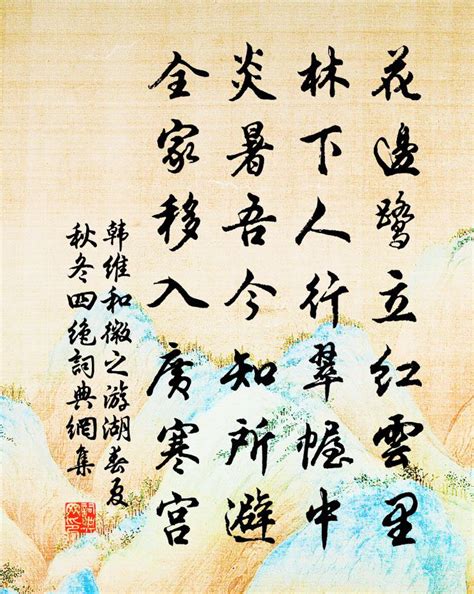 花邊鹭立紅雲里
林下人行翠幄中
炎暑吾今知所避
全家移入廣寒宫
韩维和微之游湖春夏
秋冬四绝詞典網集